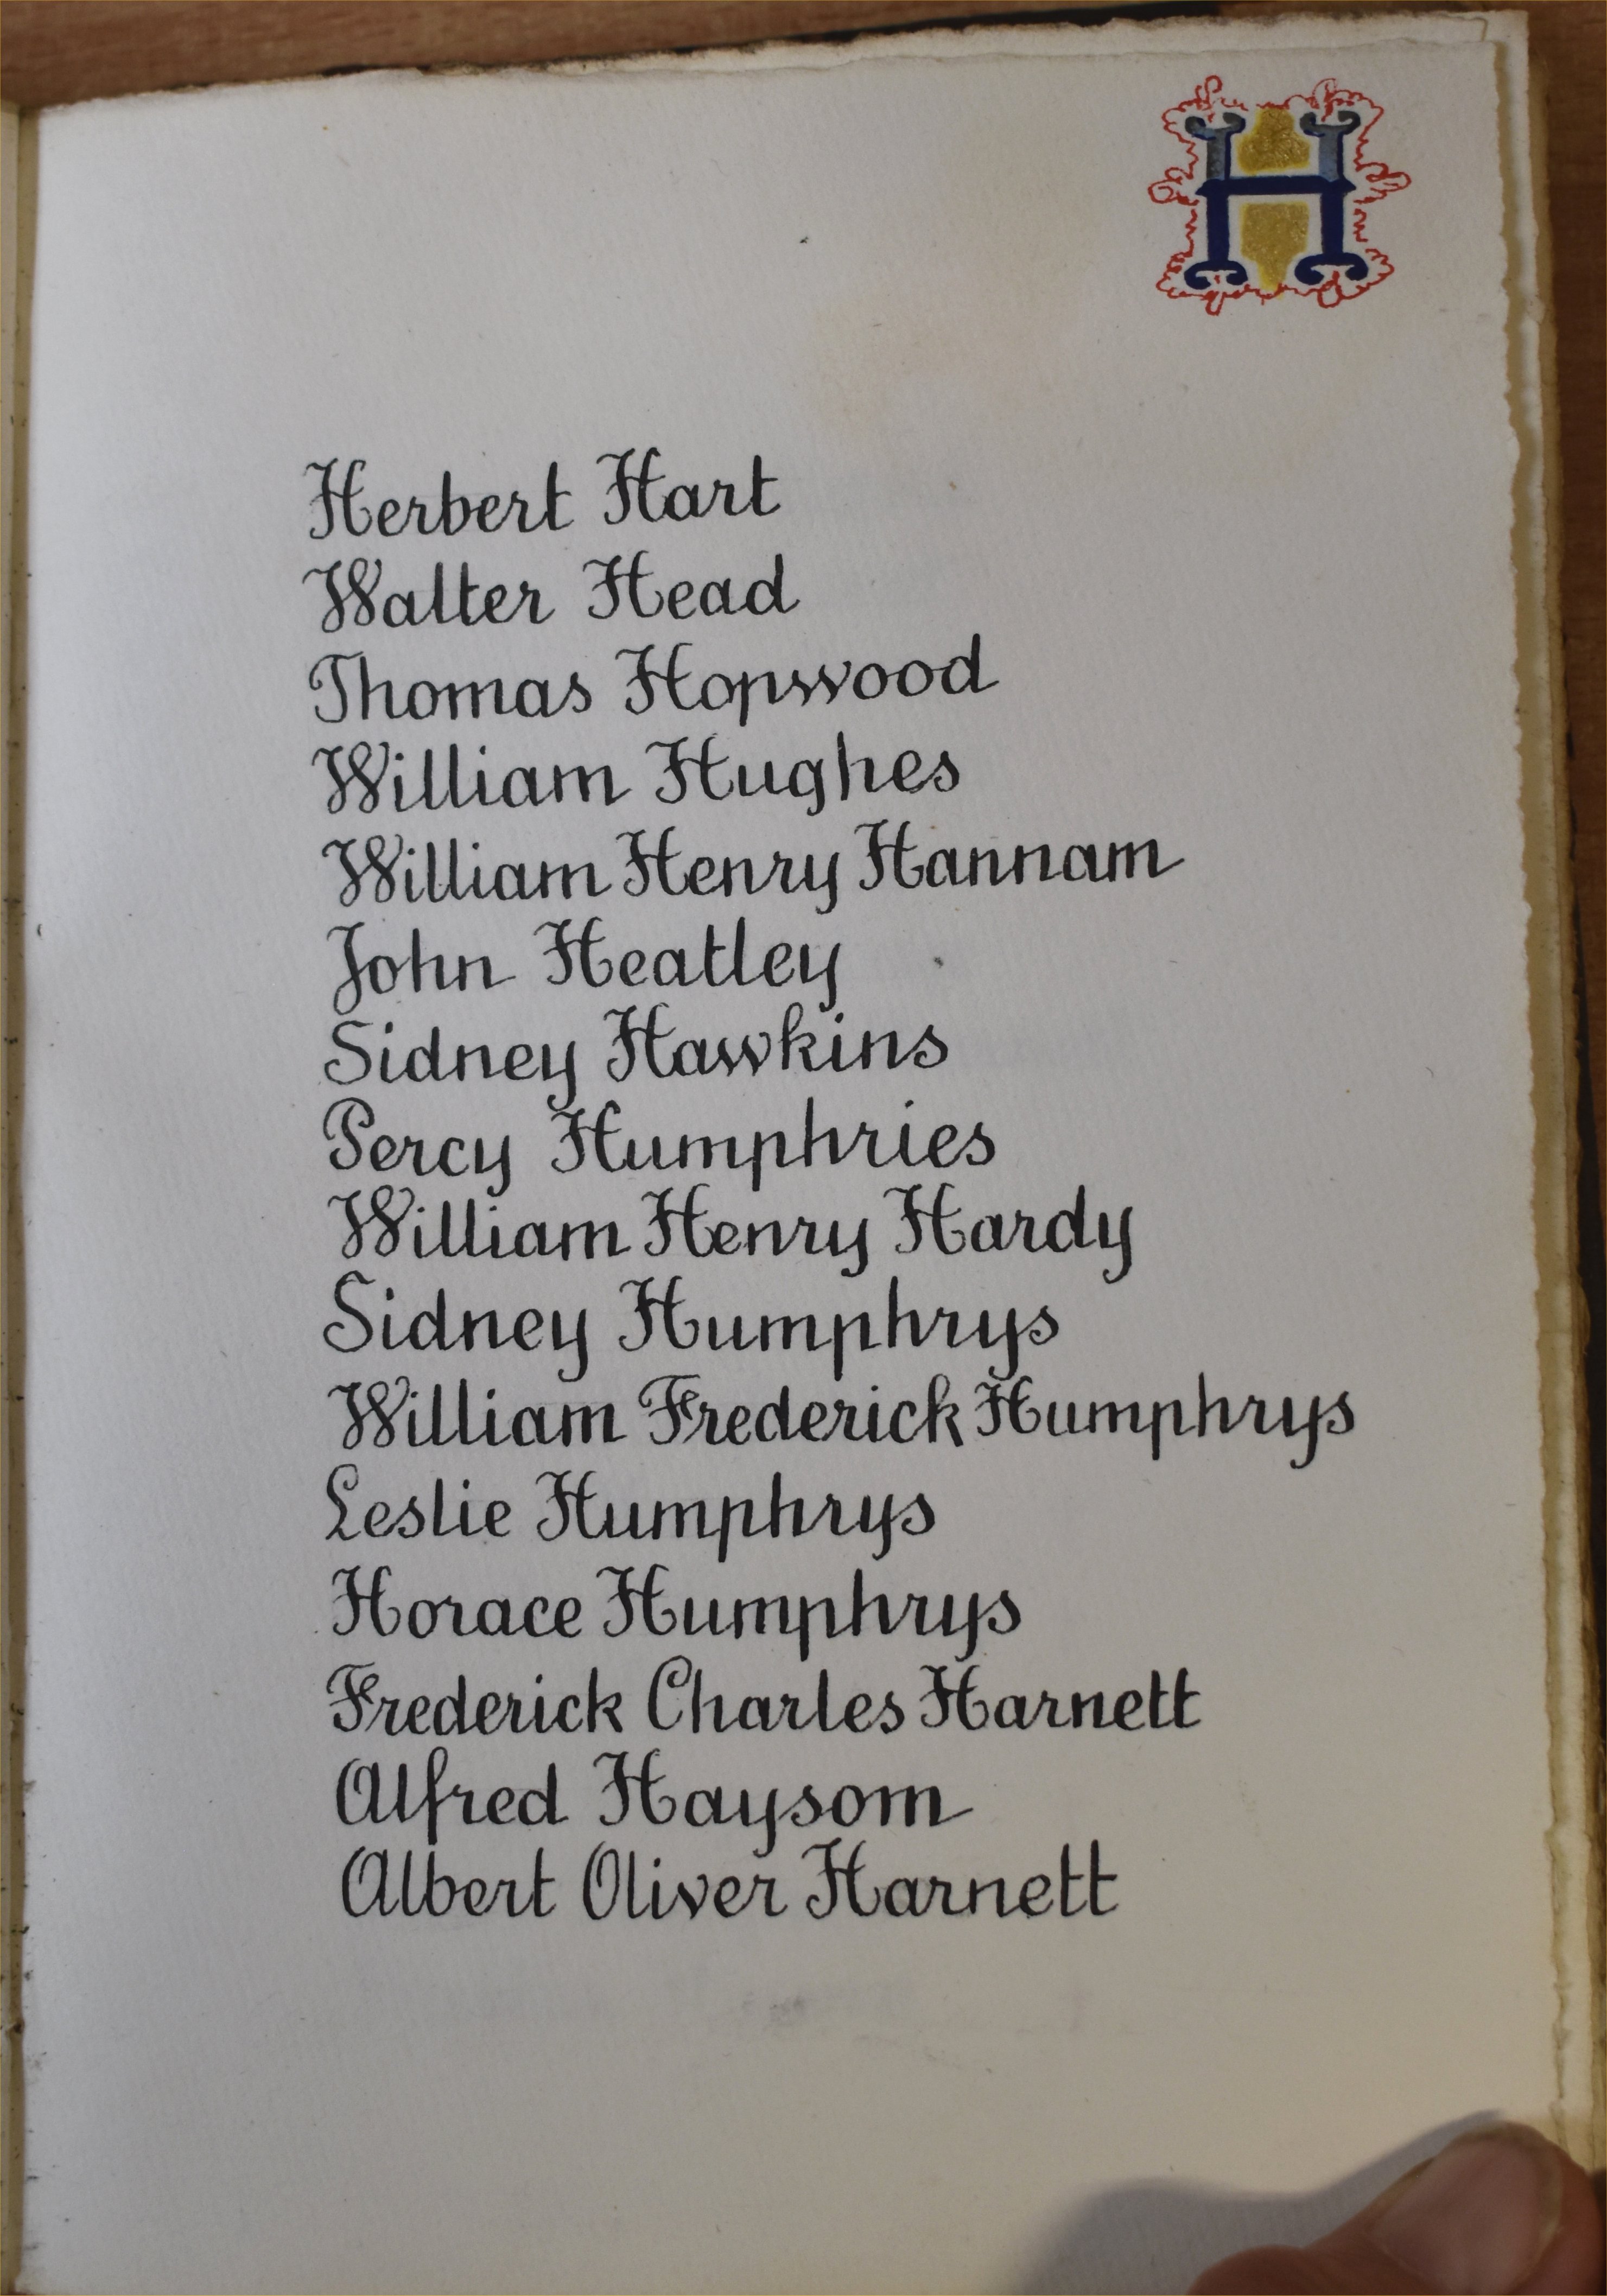 H
Herbert Hart
Walter Head
Thomas Hopwood
William Hughes
William Henry Hannam
John Heatley
Sidney Hawkins
Percy Humphries
William Henry Hardy
Sidney Humphrys
William Frederick Humphrys
Leslie Humphrys
Horace Humphrys
Frederick Charles Harnett
Alfred Haysom
Albert Oliver Harnett